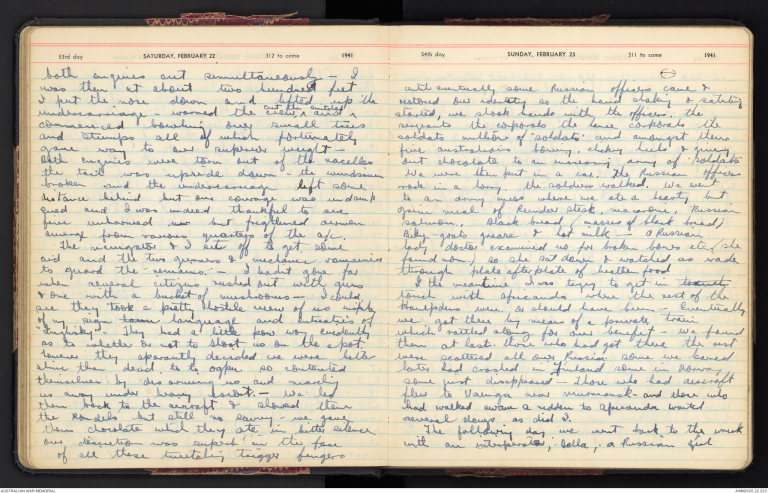 53rd day SATURDAY, FEBRUARY 22 312 to come 1941
both engines cut simultaneously - I
was then at about two hundred feet
I put the nose down and lifted up the
undercarriage - warned the crew, and
cut the switches
commenced bouncing over small trees
and stumps all of which fortunately
gave way to our superior weight -
Both engines were torn out of the nacelles
the tail was upside down - the windscreen
broken and the undercarriage left some
distance behind but our courage was undamp
ened and I was indeed thankful to see
five unharmed but frightened airmen
emerge from various quarters of the a/c.
The navigator & I set off to get some
aid and the two gunners & mechanic remained
to guard the "remains." - I hadn't gone far
when several citizens rushed out with guns
& one with a bucket of mushrooms - I could
see they took a pretty hostile view of us
by my sign language and
"Inglisky". They had a little pow wow, evidently
as to whether or not to shoot us on the spot,
however they apparently decided we were better
alive than dead, so contented
themselves by disarming us and
us away under heavy escort. - We led
them back to the aircraft & showed them
the Rondels but still no - we gave
them chocolate which they ate in bitter silence
our discretion was superb in the face
of all these trigger fingers
54th day SUNDAY, FEBRUARY 23 311 to come 1941
until eventually some Russian officers came &
restored our identity so the hand shaking & saluting
started, we shook hands with the officers, the
sergeants the corporals the lance corporals the
soldats millions of "soldats" and amongst them
five Australians bowing, clicking heels & giving
out chocolate to an increasing army of "soldats"
We were then put in a car. The Russian officer
rode in a lorry the soldiers walked. We went
to an army mess where we ate a hearty but
grim meal of Reindeer steak, macaroni, Russian
salmon, black bread (masses of black bread)
goats grease & hot milk - a Russian
lady doctor examined us for broken bones etc (she
found none) so she sat down & watched us wade
through plate after plate of heathen food
I the meantime, I was trying to get in
touch with Africanda where the rest of the
Hampdens were or should have been - Eventually
I got there by means of a private train
which rattled along for our benefit - We found
them at last - those who had got there the rest
were scattered all over Russia some we learned
later had crashed in Finland some in Norway
some just disappeared - Those who had aircraft
flew to Vaenga near Murmansk - and those who
had walked swam & ridden to Africanda waited
several days as did I.
The following day we went back to the wreck
with an interpreter, a Russian girl
AUSTRALIAN WAR MEMORIAL